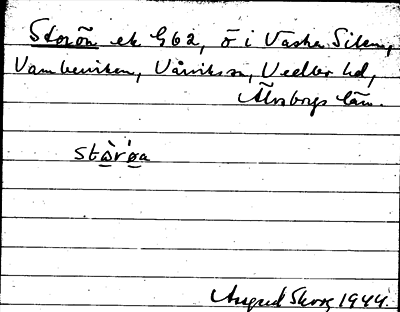 Storön ek G62, ö i Västra Silen,
Vambeviken, Vårviks sn, Vedbo hd,
Älvsborgs län.
stòr'øa
Skog, 1944.